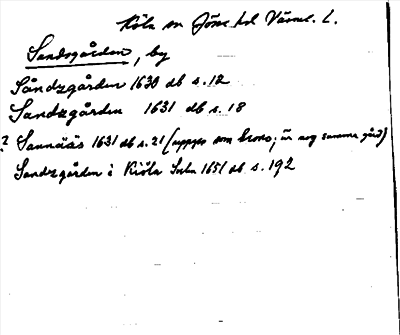 Köla sn Jösse hd Värml. L.
Sandsgården, by
Såndzgården 1630 db s. 12
Sandzgården 1631 db s. 18
? Sannääs 1631 db s. 21 (uppges som krono; är nog samma gård)
Sandzgården i Kiöla Sokn 1651 db s. 192